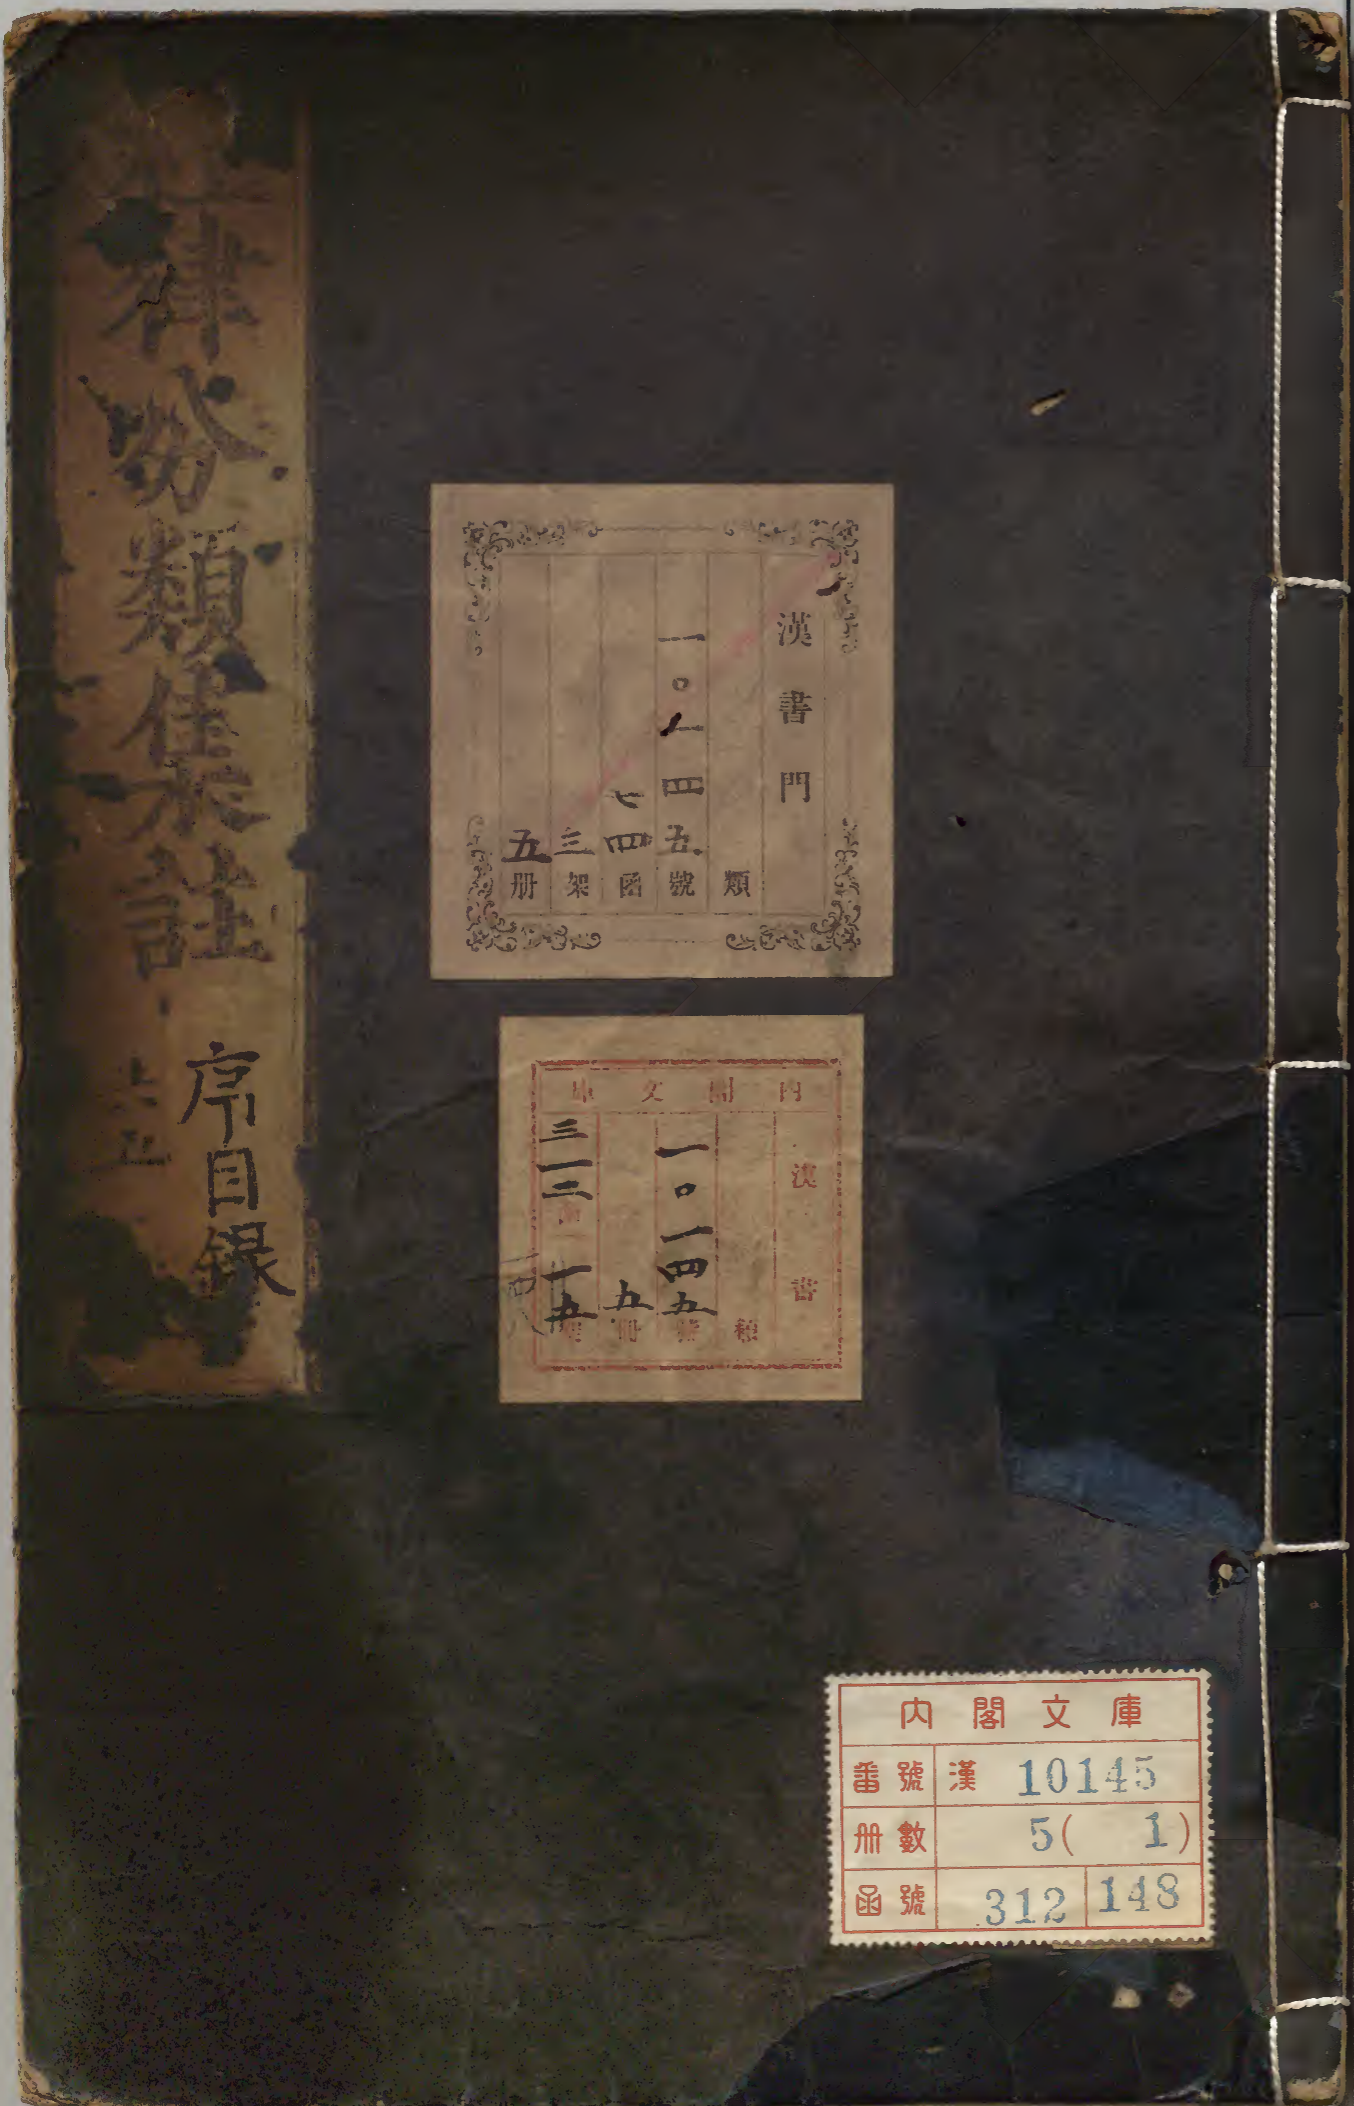 律分類集註
序目錄
漢書門
類
一〇一四五號
七四函
三架
五册
內閣文庫
漢書
種
一〇一四五號
五冊
三一三函
一五架
內閣文庫
番號 漢 10145
册數 5(1)
函號 312 148